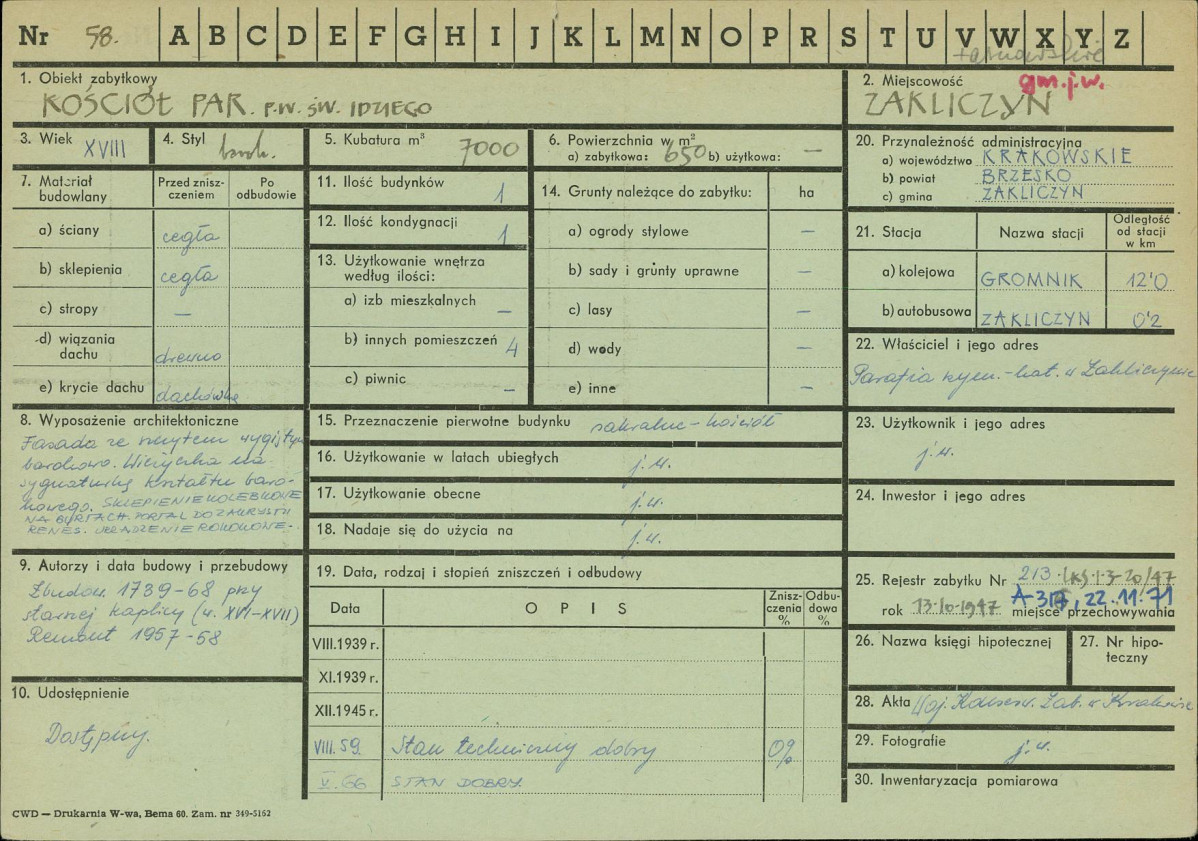 Nr 58. A B C D E F G H I J K L M N O P R S T U V W X Y Z
tarnowskie
1. Obiekt zabytkowy
KOŚCIÓŁ PAR. P.W. ŚW. IDZIEGO
2. Miejscowość gm.j.w.
ZAKLICZYN
3. Wiek XVIII
4. Styl barok.
5. Kubatura m³ 7000
6. Powierzchnia w m²
a) zabytkowa: 650 b) użytkowa: —
7. Materiał budowlany
Przed zniszczeniem
Po odbudowie
a) ściany cegła
b) sklepienia cegła
c) stropy —
d) wiązania dachu drewno
e) krycie dachu dachówka
8. Wyposażenie architektoniczne
Fasada ze szczytem wygiętym
barokowo. Wieżyczka na
sygnaturkę kształtu baro-
kowego. SKLEPIENIE KOLEBKOWE
NA GURTACH. PORTAL DO ZAKRYSTII
RENES. URZĄDZENIE ROKOKOWE.
9. Autorzy i data budowy i przebudowy
Zbudow. 1739-68 przy
starej kaplicy (w. XVI-XVII)
Remont 1957-58
10. Udostępnienie
Dostępny.
11. Ilość budynków 1
12. Ilość kondygnacji 1
13. Użytkowanie wnętrza
według ilości:
a) izb mieszkalnych —
b) innych pomieszczeń 4
c) piwnic —
14. Grunty należące do zabytku: ha
a) ogrody stylowe —
b) sady i grunty uprawne —
c) lasy —
d) wody —
e) inne —
15. Przeznaczenie pierwotne budynku sakralne - kościół
16. Użytkowanie w latach ubiegłych j.w.
17. Użytkowanie obecne j.w.
18. Nadaje się do użycia na j.w.
19. Data, rodzaj i stopień zniszczeń i odbudowy
Data OPIS Zniszczenia % Odbudowa %
VIII.1939 r.
XI.1939 r.
XII.1945 r.
VIII.59. Stan techniczny dobry 0%
V.66 STAN DOBRY.
20. Przynależność administracyjna
a) województwo KRAKOWSKIE
b) powiat BRZESKO
c) gmina ZAKLICZYN
21. Stacja Nazwa stacji Odległość od stacji w km
a) kolejowa GROMNIK 12'0
b) autobusowa ZAKLICZYN 0'2
22. Właściciel i jego adres
Parafia rzym.-kat. w Zakliczynie
23. Użytkownik i jego adres
j.w.
24. Inwestor i jego adres
25. Rejestr zabytku Nr 213
A-317, 22.11.71
rok 13.10.1947 miejsce przechowywania
26. Nazwa księgi hipotecznej
27. Nr hipoteczny
28. Akta Woj. Konserw. Zab. w Krakowie
29. Fotografie j.w.
30. Inwentaryzacja pomiarowa
CWD — Drukarnia W-wa, Bema 60. Zam. nr 349-5162